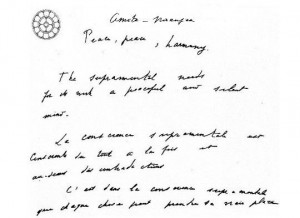 Peace, peace, harmony.
The supramental needs
for its work a peaceful and silent
mind.
La conscience supramentale est
consciente du tout à la fois et
au-dessus des contradictions
C'est dans la conscience supramentale
que chaque chose peut prendre sa vraie place